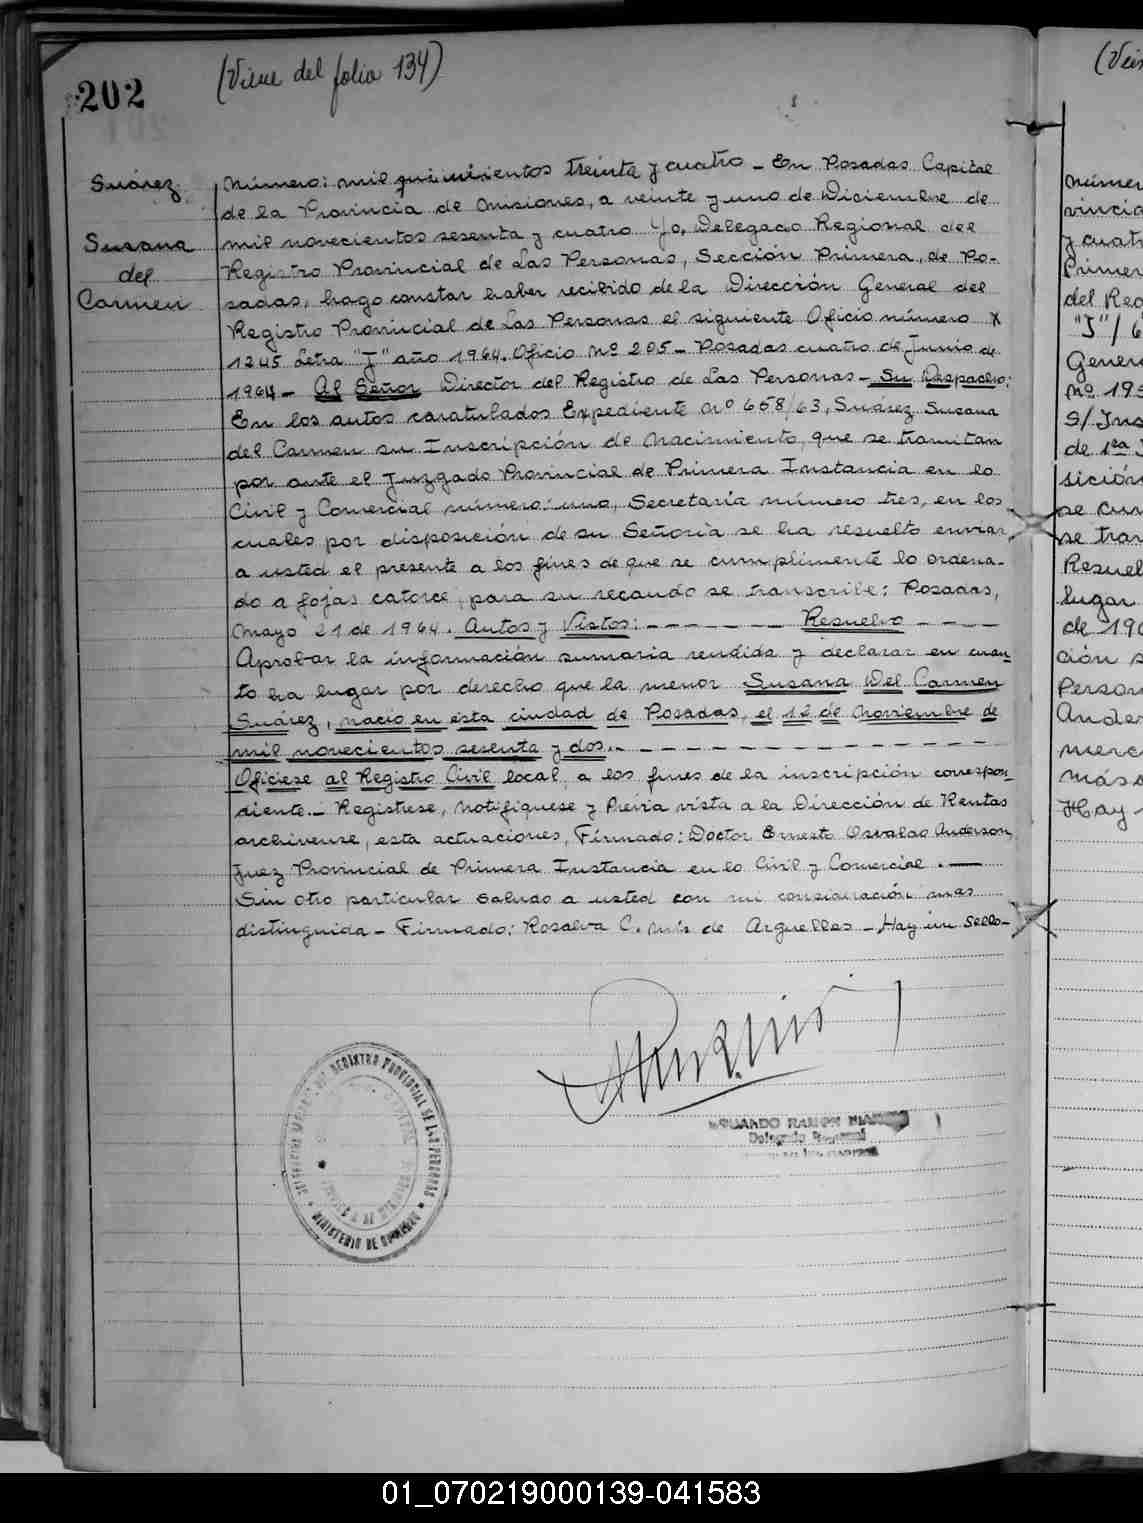 202
(Viene del folio 134)
Suárez
Susana
del
Carmen
Número: mil quinientos treinta y cuatro - En Posadas Capital
de la Provincia de Misiones, a veinte y uno de Diciembre de
mil novecientos sesenta y cuatro Yo, Delegado Regional del
Registro Provincial de Las Personas, Sección Primera, de Po-
sadas, hago constar haber recibido de la Dirección General del
Registro Provincial de Las Personas el siguiente Oficio número
1245 Letra "J" año 1964. Oficio Nº 205 - Posadas cuatro de Junio de
1964 - Al Señor Director del Registro de Las Personas - Su Despacho:
En los autos caratulados Expediente Nº 658/63, Suárez Susana
del Carmen su Inscripción de Nacimiento, que se tramitan
por ante el Juzgado Provincial de Primera Instancia en lo
Civil y Comercial número: uno, Secretaría número tres, en los
cuales por disposición de su Señoría se ha resuelto enviar
a usted el presente a los fines de que se cumplimente lo ordena-
do a fojas catorce, para su recaudo se transcribe: Posadas,
Mayo 21 de 1964. Autos y Vistos: - - - - - - - Resuelvo - - - -
Aprobar la información sumaria rendida y declarar en cuan-
to ha lugar por derecho que la menor Susana Del Carmen
Suárez, nació en esta ciudad de Posadas, el 12 de Noviembre de
mil novecientos sesenta y dos. - - - - - - - - - - - -
Ofíciese al Registro Civil local, a los fines de la inscripción correspon-
diente. - Registrese, notifiquese y Previa vista a la Dirección de Rentas
archivense, esta actuaciones, Firmado: Doctor Ernesto Osvaldo Anderson,
Juez Provincial de Primera Instancia en lo Civil y Comercial . -
Sin otro particular saludo a usted con mi consideración mas
distinguida - Firmado: Rosalva C. de Arguelles - Hay un Sello -
EDUARDO RAMON
Delegado Regional
REGISTRO PROVINCIAL DE LAS PERSONAS
MINISTERIO DE GOBIERNO
(Vie
Númer
vincia
y cuatr
Primer
del Reg
"J" / 6
Genera
Nº 195
S/ Ins
de 1ra
sición
se cum
se tran
Resuel
lugar
de 196
ción s
Person
Ander
merc
más d
Hay
01_070219000139-041583